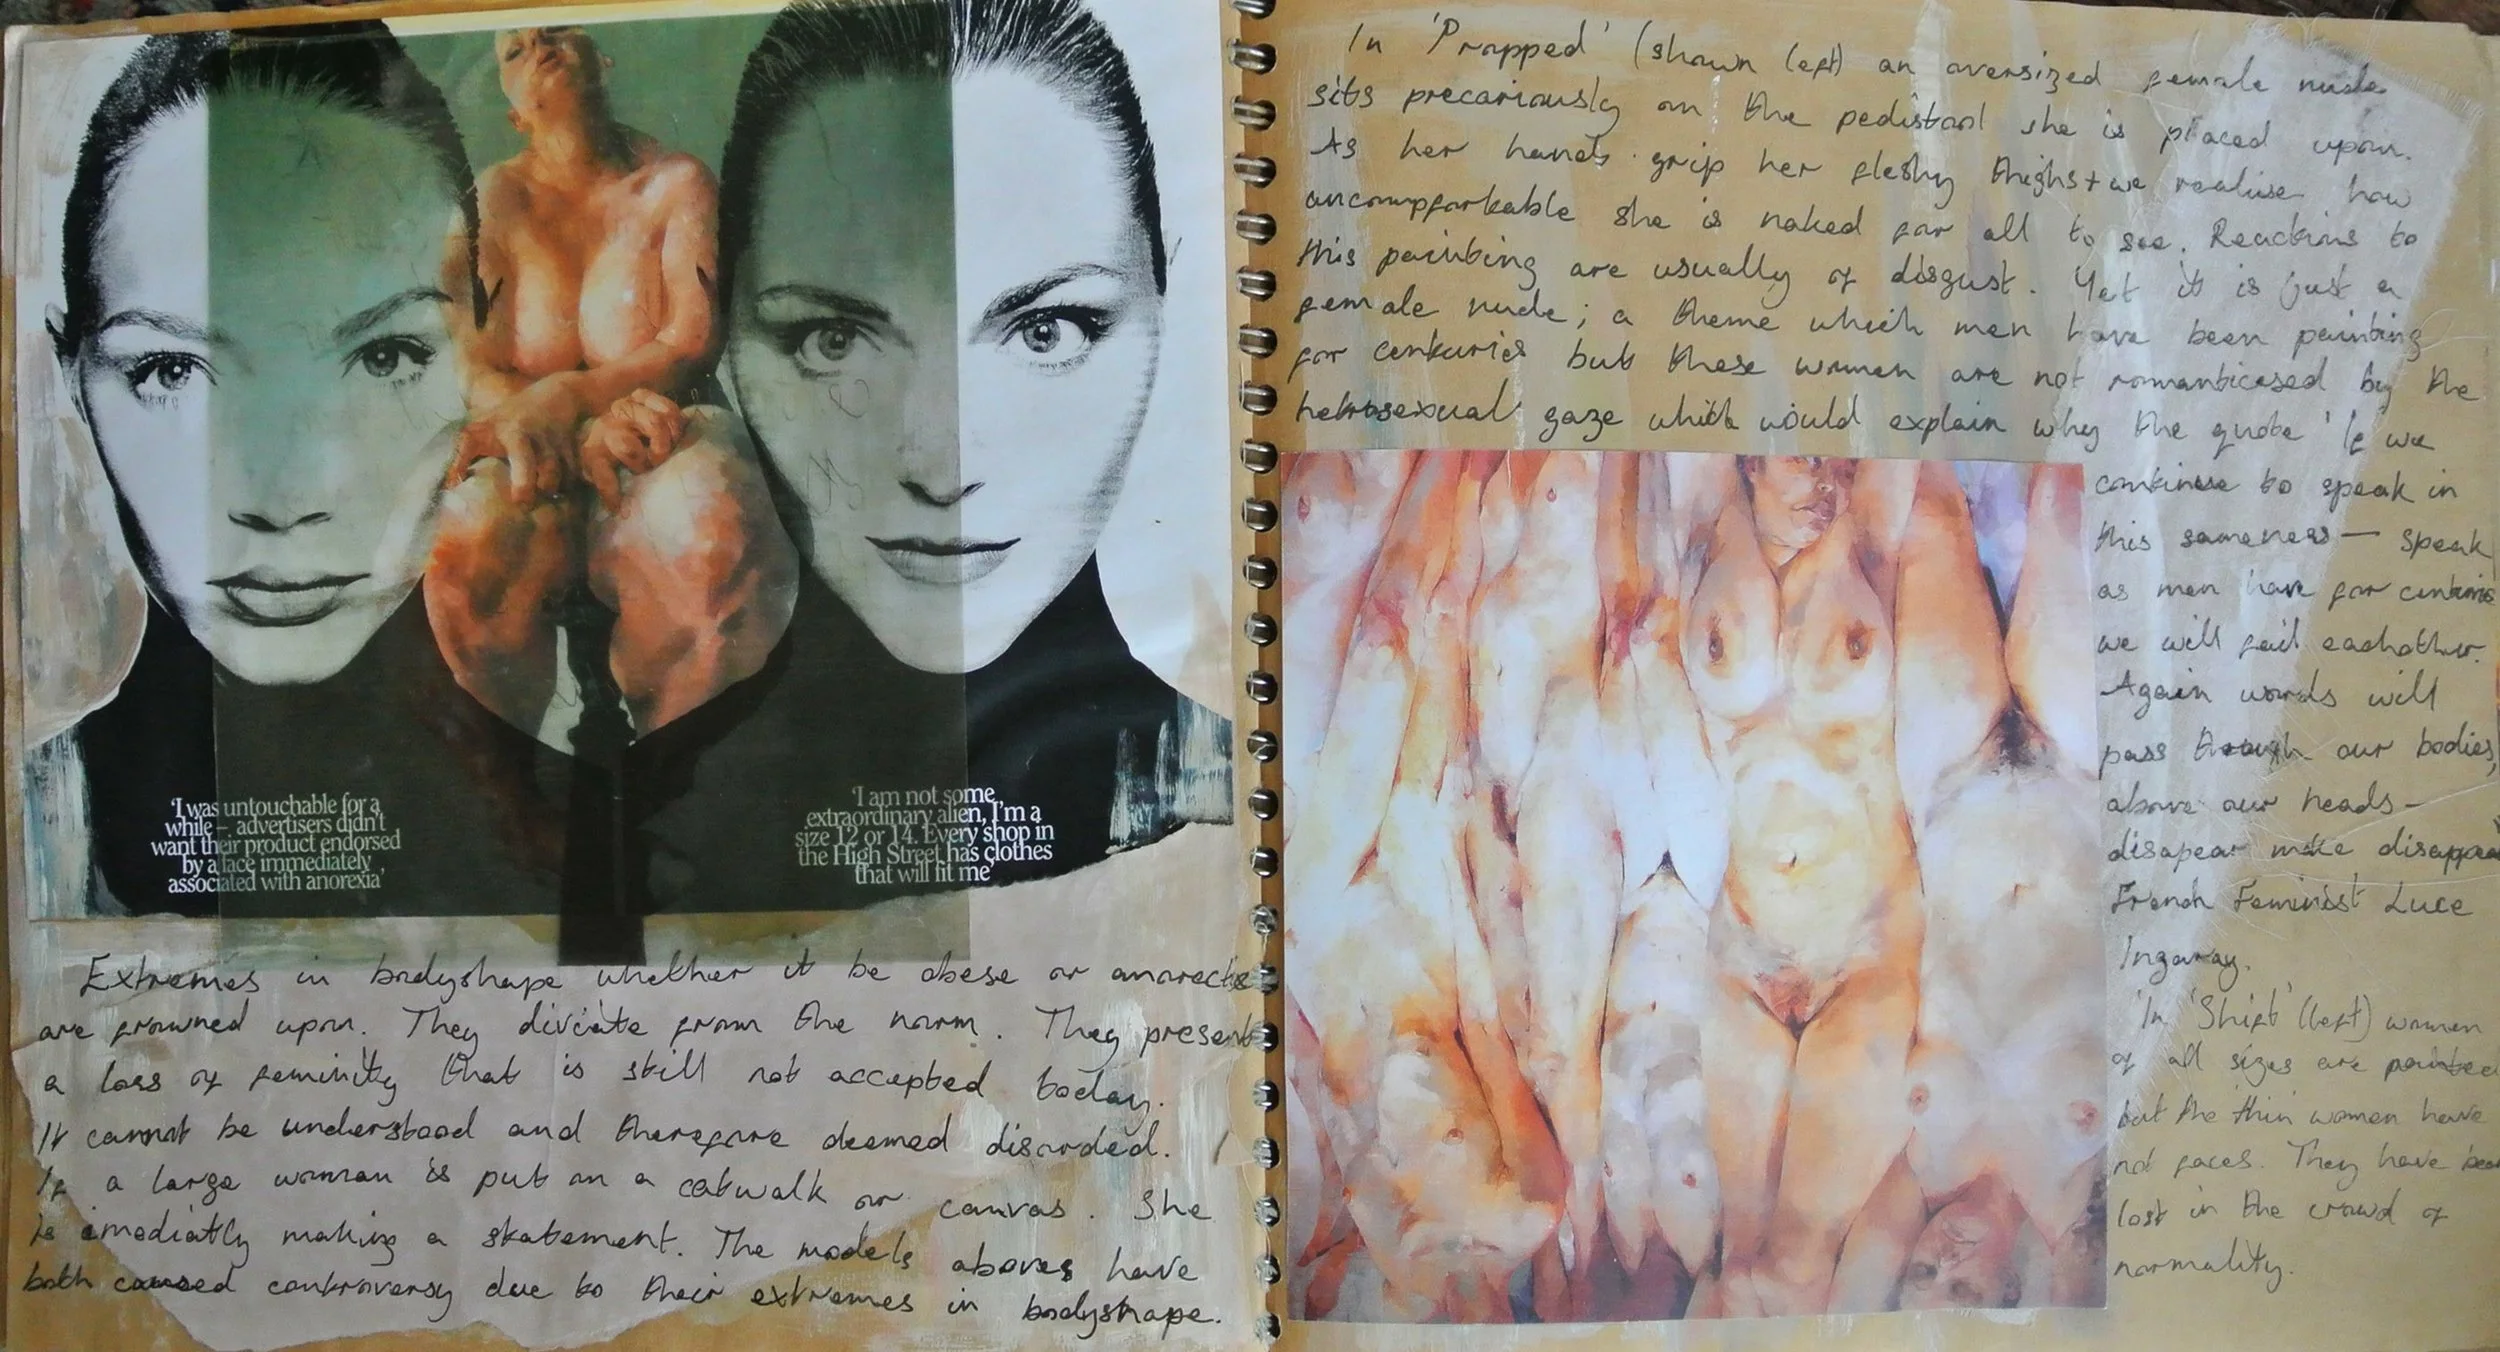 'I was untouchable for a
while – advertisers didn't
want their product endorsed
by a face immediately
associated with anorexia'
'I am not some
extraordinary alien, I'm a
size 12 or 14. Every shop in
the High Street has clothes
that will fit me'
Extremes in bodyshape whether it be obese or anorectic
are frowned upon. They diviate from the norm. They present
a loss of feminity that is still not accepted today.
It cannot be understood and therefore deemed disorded.
If a large woman is put on a catwalk or canvas. She
is imediatly making a statement. The models aboves have
both caused controversy due to their extremes in bodyshape.
In 'Propped' (shown left) an oversized female nude
sits precariously on the pedistool she is placed upon.
As her hands grip her fleshy thighs + we realise how
uncompforkable she is naked for all to see. Reactions to
this painting are usually of disgust. Yet it is just a
female nude; a theme which men have been painting
for centuries but these women are not romanticased by the
hetrosexual gaze which would explain why the quote 'If we
continue to speak in
this sameness — speak
as men have for centuries
we will fail eachother.
Again words will
pass through our bodies,
above our heads –
disapear make disappear
French Feminist Luce
Ingaray.
In 'Shift' (left) women
of all sizes are painted
but the thin women have
not faces. They have been
lost in the crowd of
normality.